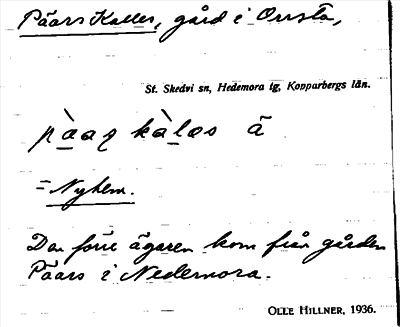 Päars Kalles, gård i Orrsta,
St. Skedvi sn, Hedemora tg, Kopparbergs län.
pàaʂ kàlæs ā
= Nyhem.
Den förre ägaren kom från gården
Päars i Nedernora.
OLLE HILLNER, 1936.